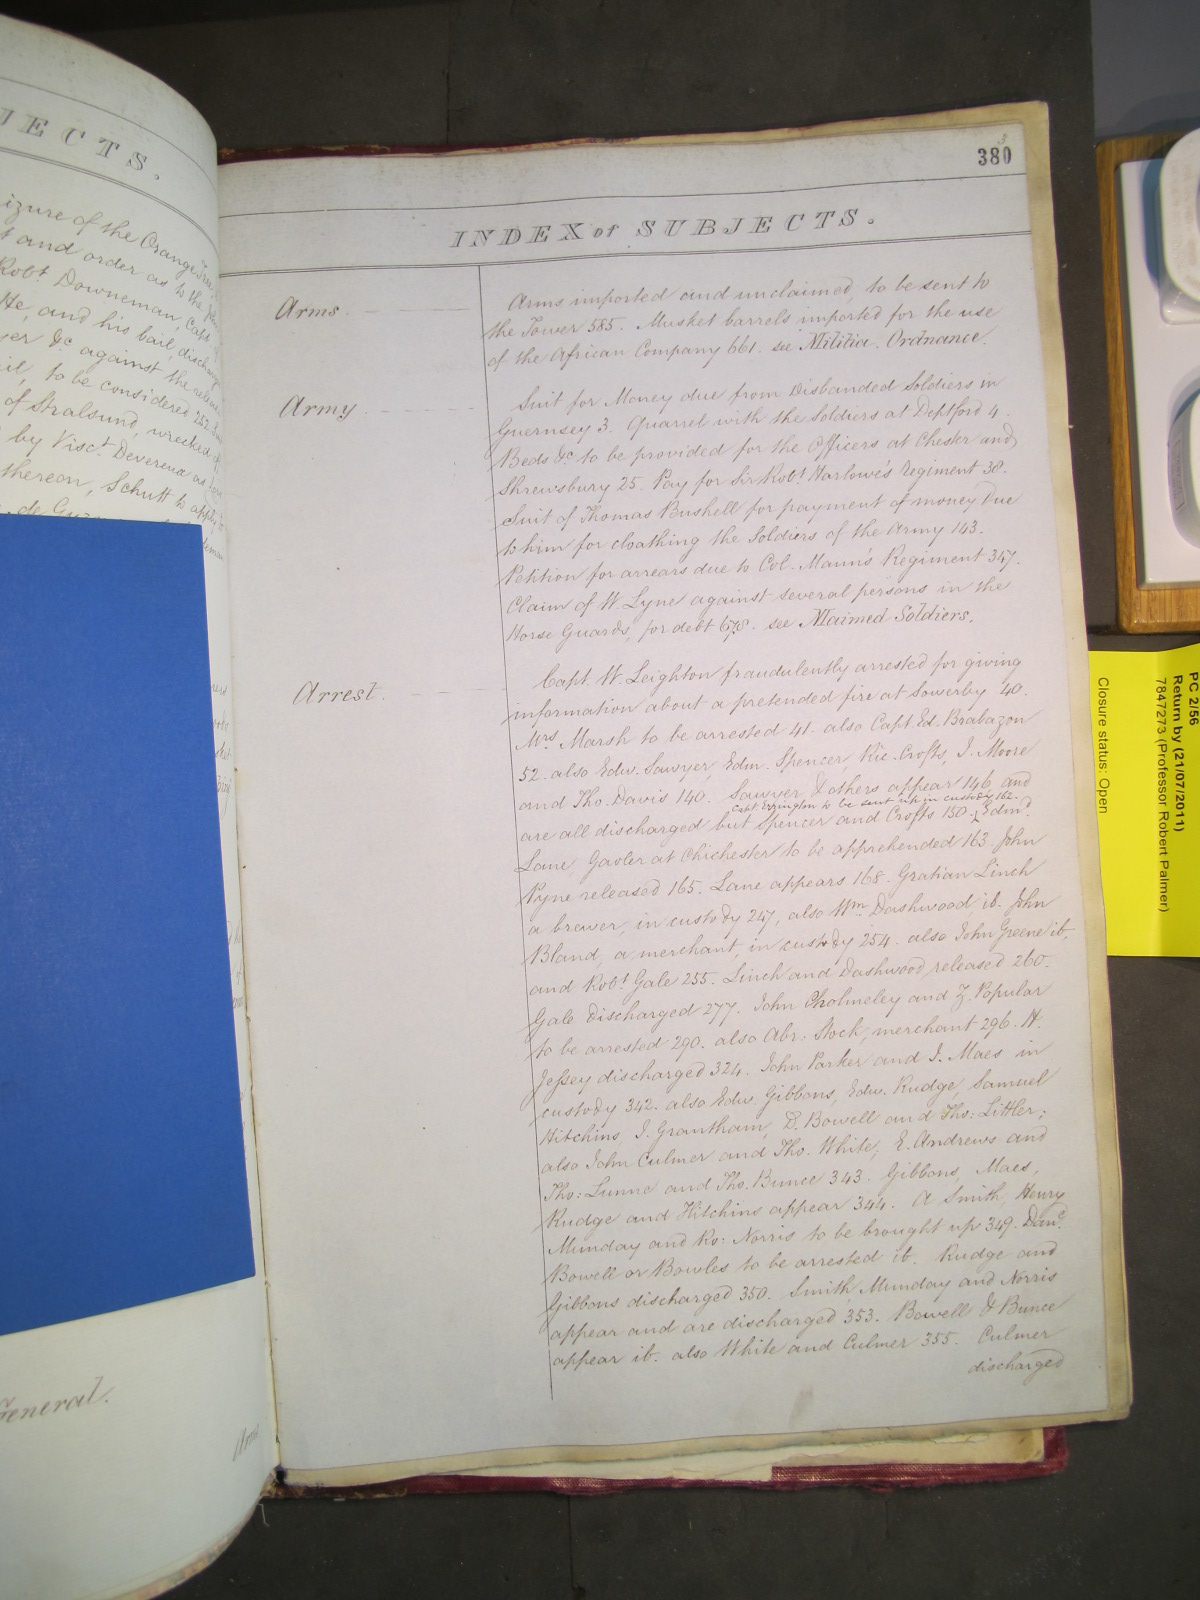 JECTS.
izure of the Orange Tree
t and order as to the
Robt. Downeman, Capt.
He, and his bail, discharg
er &c against the release
il, to be considered 252.
of Stralsund, wrecked
by Visct. Devereux as
thereon, Schutt to apply
General.
Arms
380
INDEX of SUBJECTS.
Arms.
Arms imported and unclaimed, to be sent to
the Tower 585. Musket barrels imported for the use
of the African Company 661. see Militia. Ordnance.
Army
Suit for Money due from Disbanded Soldiers in
Guernsey 3. Quarrel with the Soldiers at Deptford 4.
Beds &c to be provided for the Officers at Chester and
Shrewsbury 25. Pay for Sir Robt. Harlowe's Regiment 30.
Suit of Thomas Bushell for payment of money Due
to him for cloathing the Soldiers of the Army 143.
Petition for arrears due to Col. Mann's Regiment 347.
Claim of W. Lyne against several persons in the
Horse Guards, for debt 678. see Maimed Soldiers.
Arrest.
Capt. W. Leighton fraudulently arrested for giving
information about a pretended fire at Sowerby 40.
Mrs. Marsh to be arrested 41. also Capt Ed. Brabazon
52. also Edw. Sawyer, Edm. Spencer, Ric. Crofts, J. Moore
and Tho. Davis 140. Sawyer & others appear 146 and
Capt Errington to be sent up in custody 162.
are all discharged but Spencer and Crofts 150. Edmd.
Lane, Gaoler at Chichester to be apprehended 163. John
Pyne released 165. Lane appears 168. Gratian Linch
a brewer, in custody 247, also Wm. Dashwood, ib. John
Bland, a merchant, in custody 254. also John Greene ib.
and Robt. Gale 255. Linch and Dashwood, released 260.
Gale discharged 277. John Cholmeley and Z. Popular
to be arrested 290. also Abr: Stock, merchant 296. H.
Jessey discharged 324. John Parker and J. Maes in
custody 342. also Edw. Gibbons, Edw. Rudge, Samuel
Hitchins, J. Grantham, D. Bowell and Tho: Littler;
also John Culmer and Tho. White; E. Andrews and
Tho: Lunne and Tho. Bunce 343. Gibbons, Maes,
Rudge and Hitchins appear 344. A Smith, Henry
Munday and Ro: Norris to be brought up 349. Danl.
Bowell or Bowles to be arrested ib. Rudge and
Gibbons discharged 350. Smith Munday and Norris
appear and are discharged 353. Bowell & Bunce
appear ib. also White and Culmer 355. Culmer
discharged
PC 2/56
Return by (21/07/2011)
7847273 (Professor Robert Palmer)
Closure status: Open